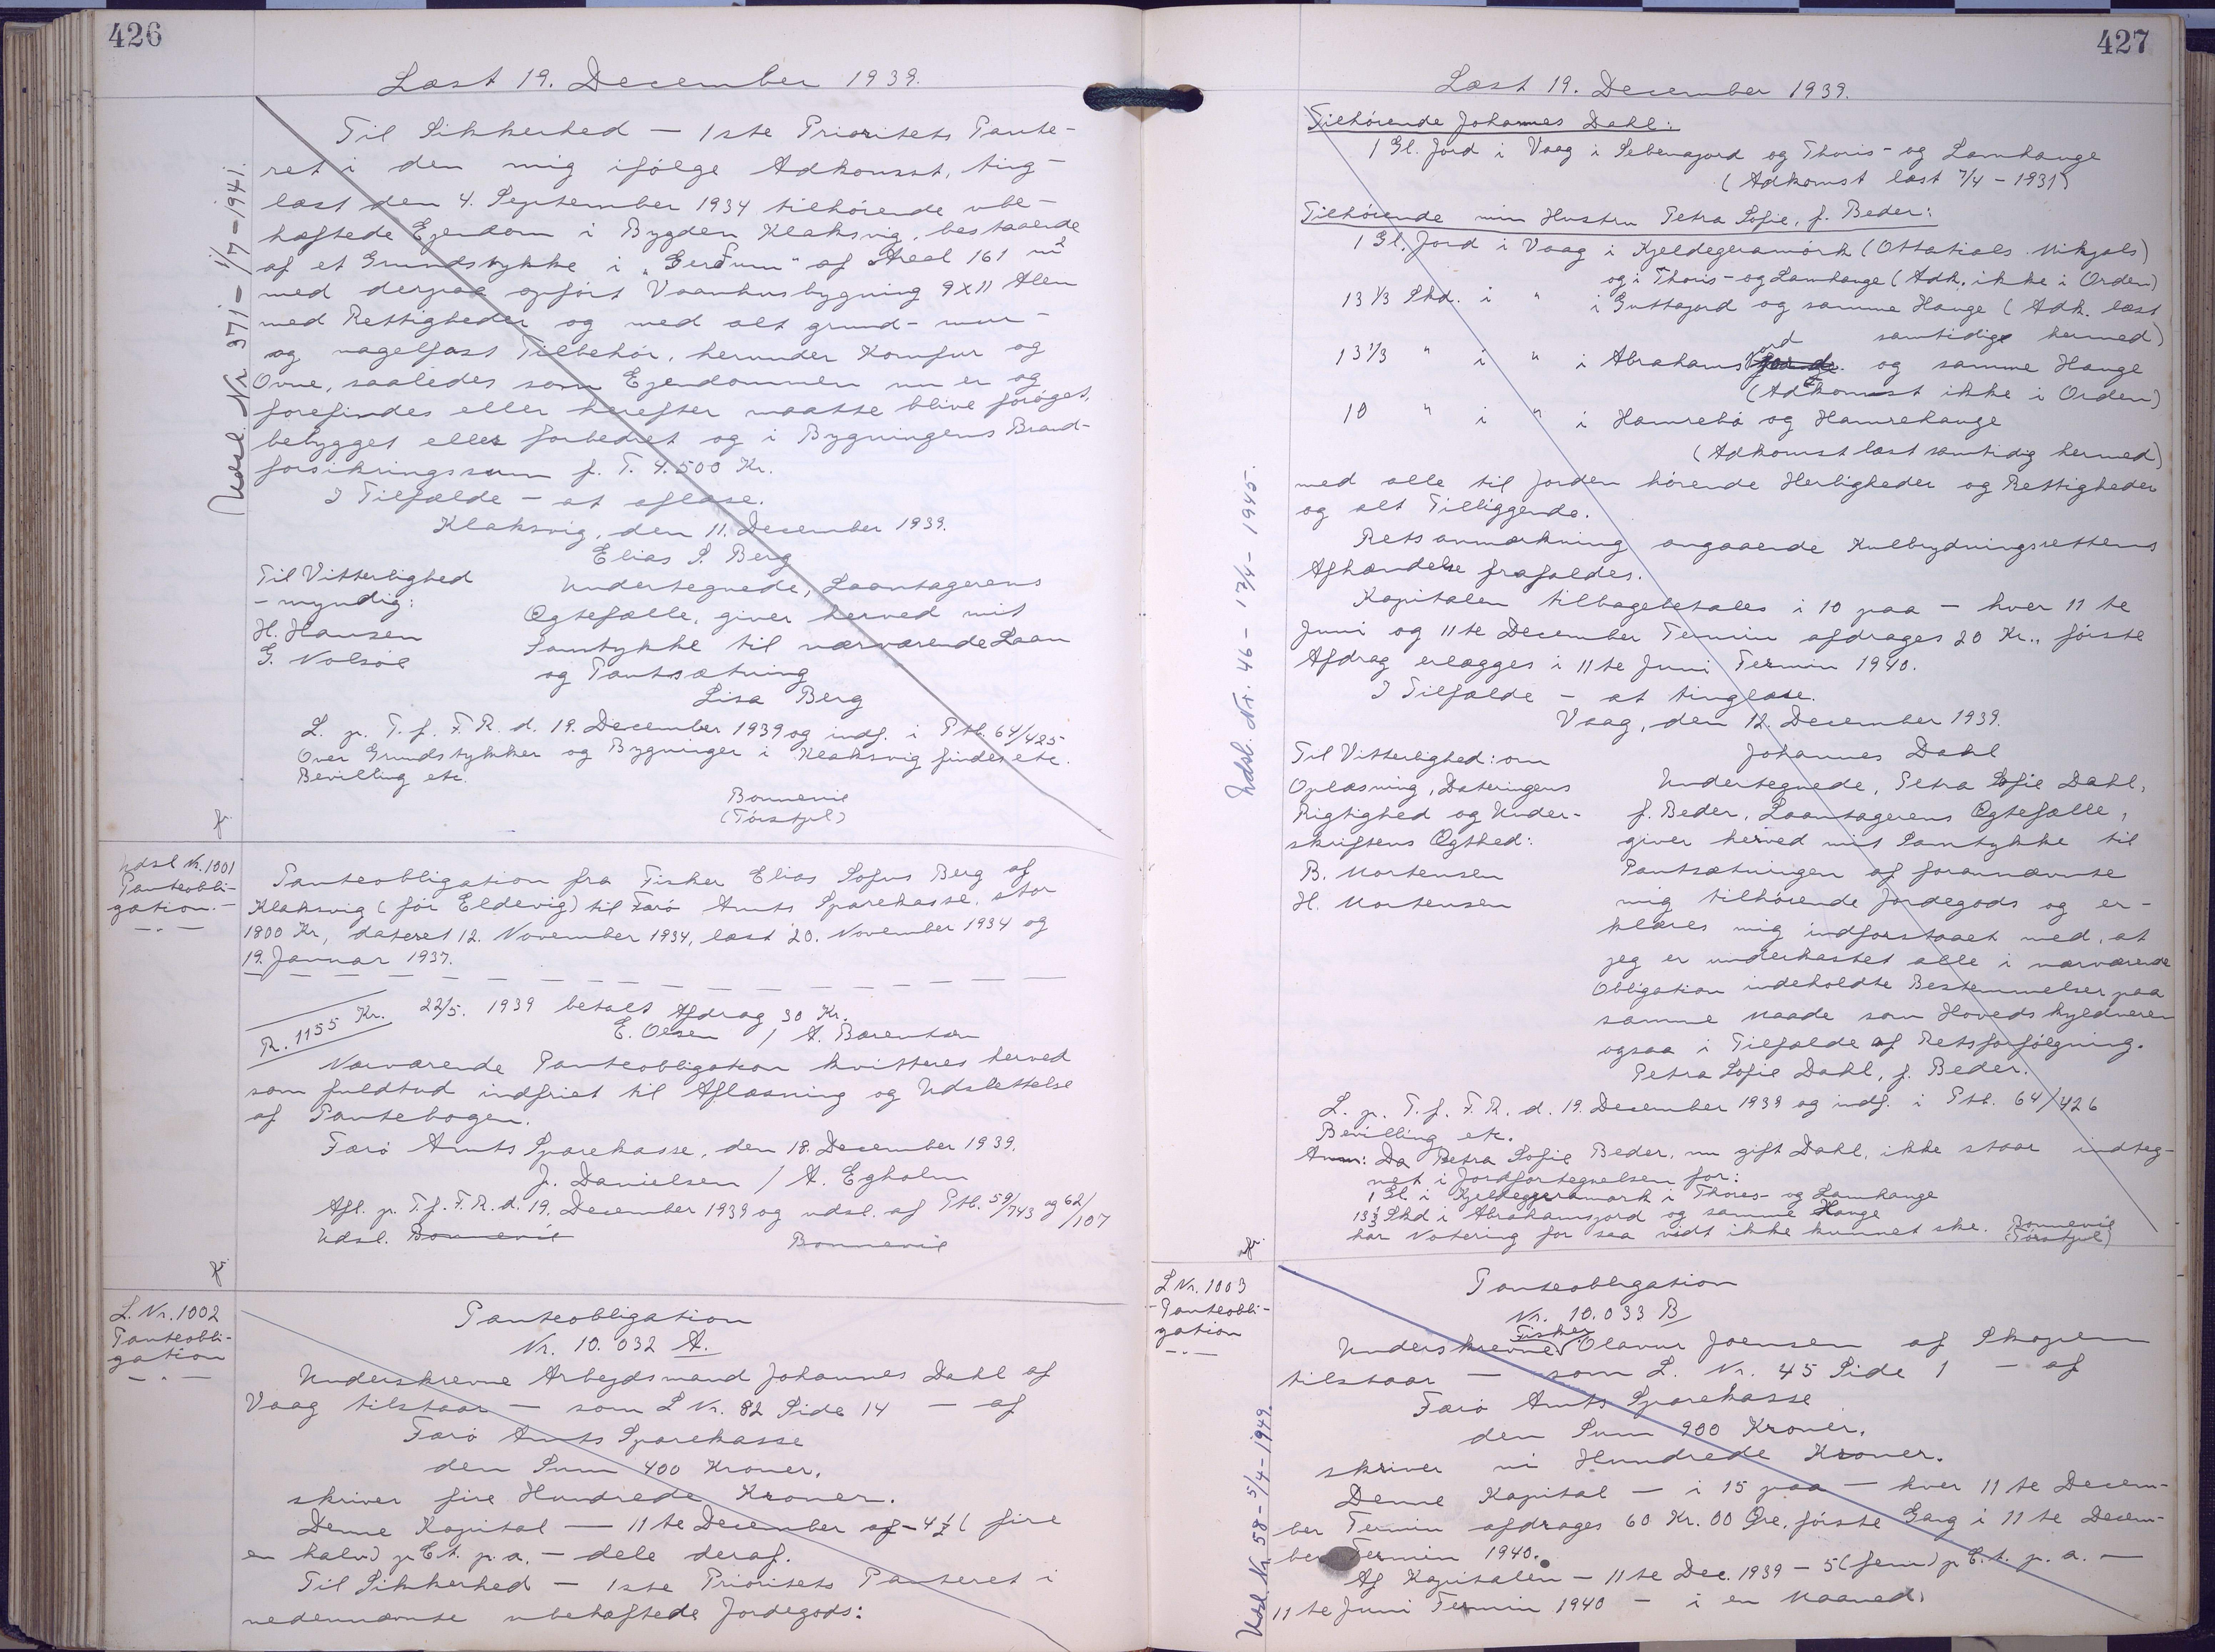 426
Læst 19. December 1939.
Til Sikkerhed — 1ste Prioritets Pante-
ret i den mig ifølge Adkomst, ting-
læst den 4. September 1934 tilhørende ube-
hæftede Ejendom i Bygden Klaksvig, bestaaende
af et Grundstykke i "Gerðum" af Areal 161 m²
med derpaa opført Vaanhusbygning 9x11 Alen
med Rettigheder og med alt grund- mur-
og nagelfast Tilbehør, herunder Komfur og
Ovne, saaledes som Ejendommen nu er og
forefindes eller herefter maatte blive forøget,
bebygget eller forbedret og i Bygningens Brand-
forsikringssum p. T. 4.500 Kr.
I Tilfælde — at aflæse.
Klaksvig, den 11. December 1939.
Elias S. Berg
Til Vitterlighed
- myndig:
H. Hansen
G. Nolsöe
Undertegnede, Laantagerens
Ægtefælle, giver herved mit
Samtykke til nærværende Laan
og Pantsætning
Lisa Berg
L. p. T. f. F. R. d. 19. December 1939 og indf. i Ptb. 64/425
Over Grundstykker og Bygninger i Klaksvig findes etc.
Bevilling etc.
Bonnevie
(Tórstjul)
Udsl. Nr. 371 - 1/7 - 1941.
Udsl Nr. 1001
Panteobli-
gation.
Panteobligation fra Fisker Elias Sofus Berg af
Klaksvig (før Eldevig) til Færø Amts Sparekasse, stor
1800 Kr, dateret 12. November 1934, læst 20. November 1934 og
19. Januar 1937.
R. 1155 Kr. 22/5. 1939 betalt Afdrag 30 Kr.
E. Olsen / A. Bærentsen
Nærværende Panteobligation kvitteres herved
som fuldtud indfriet til Aflæsning og Udslettelse
af Pantebogen.
Færø Amts Sparekasse, den 18. December 1939.
J. Danielsen / A. Egholm
Afl. p. T. f. F. R. d. 19. December 1939 og udsl. af Ptb. 59/743 og 62/107
Udsl. Bonnevie
Bonnevie
L. Nr. 1002
Panteobli-
gation
Panteobligation
Nr. 10.032 A.
Underskrevne Arbejdsmand Johannes Dahl af
Vaag tilstaar — som L Nr. 82 Side 14 — af
Færø Amts Sparekasse
den Sum 400 Kroner,
skriver fire Hundrede Kroner.
Denne Kapital — 11te December af - 4½ (fire
en halv) pCt. p.a. — dele deraf.
Til Sikkerhed — 1ste Prioritets Panteret i
nedennævnte ubehæftede Jordegods:
427
Læst 19. December 1939.
Tilhørende Johannes Dahl:
1 Gl. Jord i Vaag i Sebenajord og Thoris- og Lamhauge
(Adkomst læst 7/4 - 1931)
Tilhørende min Hustru Petra Sofie, f. Beder:
1 Gl. Jord i Vaag i Kjeldegeramörk (Ottatials Mikjals)
og i Thoris- og Lamhauge (Adk. ikke i Orden)
13 1/3 Skd. i " i Guttajord og samme Hauge (Adk. læst
samtidige hermed)
13 1/3 " i " i Abrahamsjord og samme Hauge
(Adkomst ikke i Orden)
10 " i " i Hamrebø og Hamrehauge
(Adkomst læst samtidig hermed)
med alle til Jorden hørende Herligheder og Rettigheder
og alt Tilliggende.
Retsanmærkning angaaende Kulbrydningsrettens
Afhændelse frafaldes.
Kapitalen tilbagebetales i 10 paa — hver 11te
Juni og 11te December Termin afdrages 20 Kr., første
Afdrag erlægges i 11te Juni Termin 1940.
I Tilfælde — at tinglæse.
Vaag, den 12. December 1939.
Johannes Dahl
Til Vitterlighed: om
Oplæsning, Dateringens
Rigtighed og Under-
skriftens Ægthed:
B. Mortensen
H. Mortensen
Undertegnede, Petra Sofie Dahl,
f. Beder, Laantagerens Ægtefælle,
giver herved mit Samtykke til
Pantsætningen af forannævnte
mig tilhørende Jordegods og er-
klæres mig indforstaaet med, at
jeg er underkastet alle i nærværende
Obligation indeholdte Bestemmelser paa
samme Maade som Hovedskyldneren
ogsaa i Tilfælde af Retsforfølgning.
Petra Sofie Dahl, f. Beder.
L. p. T. f. F. R. d. 19. December 1939 og indf. i Ptb. 64/426
Bevilling etc.
Anm: Da Petra Sofie Beder, nu gift Dahl, ikke staar indteg-
net i Jordfortegnelsen for:
1 Gl. i Kjeldegeramørk i Thores- og Lamhauge
13 1/3 Skd i Abrahamsjord og samme Hauge
har Notering for saa vidt ikke kunnet ske. Bonnevie
(Tórstjul)
Udsl. Nr. 46 - 17/4 - 1945.
L Nr. 1003
Panteobli-
gation
Panteobligation
Nr. 10.033 B
Underskrevne Fisker Olavur Joensen af Skopen
tilstaar — som L. Nr. 45 Side 1 — af
Færø Amts Sparekasse
den Sum 900 Kroner,
skriver ni Hundrede Kroner.
Denne Kapital — i 15 paa — hver 11te Decem-
ber Termin afdrages 60 Kr. 00 Øre, første Gang i 11te Decem-
ber Termin 1940.
Af Kapitalen — 11te Dec. 1939 — 5 (fem) pC.t. p.a. —
11te Juni Termin 1940 — i en Maaned.
Udsl. Nr. 58 - 5/4 - 1949.